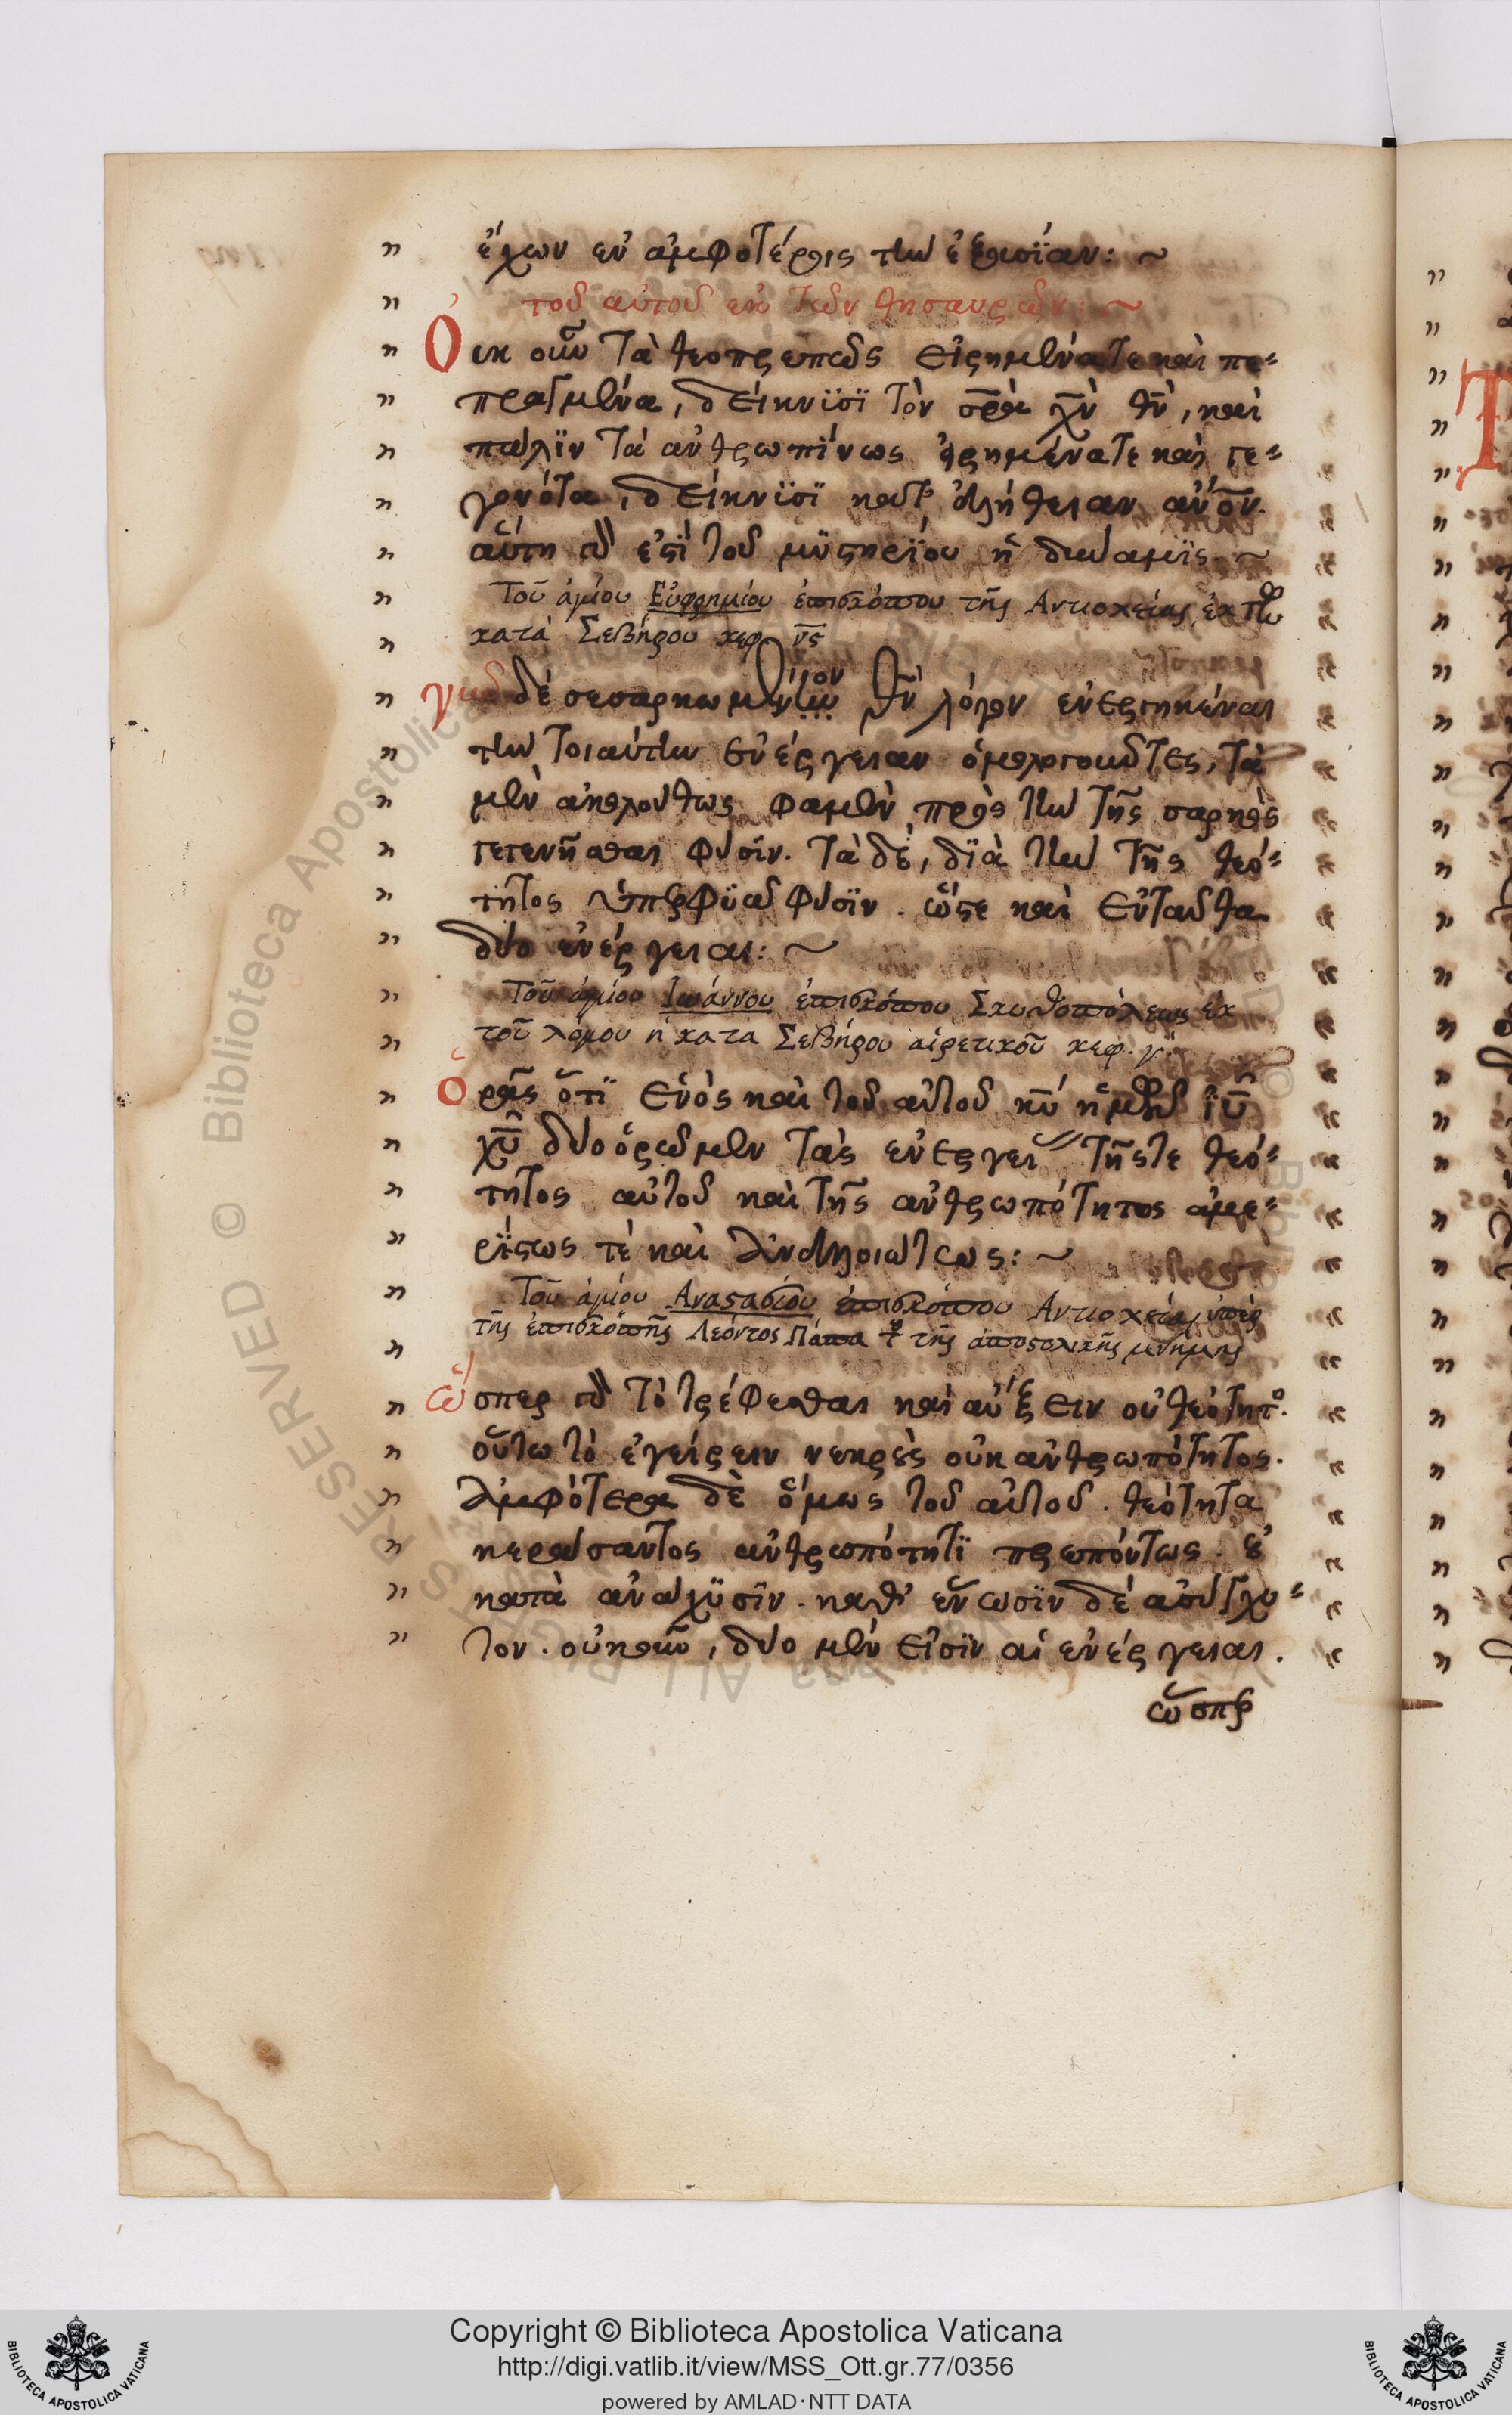 ἔχων ἐν ἀμφοτέροις τὴν ἐξουσΐαν: ~
τοῦ αὐτοῦ ἐκ τῶν θησαυρῶν: ~
Οὐκ οὖν τὰ θεοπρεπῶς εἰρημένα τε καὶ πε-
πραγμένα, δείκνϋσϊ τὸν σρ̅α χ̅ν θ̅ν, καὶ
πάλϊν τὰ ἀνθρωπίνως εἰρημένα τε καὶ γε-
γονότα, δείκνϋσϊ κατ' ἀλήθειαν α̅ν̅ο̅ν.
αὕτη γάρ ἐστϊ τοῦ μϋστηρΐου ἡ δύναμϊς ~
Τοῦ ἁγίου Εὐφρημίου ἐπισκόπου τῆς Αντιοχείας, ἐκ τῶν
κατὰ Σεβήρου κεφ. ν̅ς
δὲ σεσαρκωμένον θ̅ν λόγον ἐνεργηκέναι
τὴν τοιαύτην ἐνέργειαν ὁμολογοῦντες, τὰ
μὲν ἀκολούθως φαμὲν, πρὸς τὴν τῆς σαρκὸς
γεγενῆσθαι φύσϊν. τὰ δὲ, δϊὰ τὴν τῆς θεό-
τητος ὑπερφϋᾶ φύσϊν. ὥστε καὶ ἐνταῦθα
δύο ἐνέργειαι: ~
Τοῦ ἁγίου Ιωάννου ἐπισκόπου Σκυθοπόλεως ἐκ
τοῦ λόγου η κατὰ Σεβήρου αἱρετικοῦ κεφ. γ.
ὁρᾷς ὅτϊ ἑνὸς καὶ τοῦ αὐτοῦ κ̅υ ἡμῶν ϊ̅υ
χ̅υ δύο ὁρῶμεν τὰς ἐνεργείας τῆς τε θεό-
τητος αὐτοῦ καὶ τῆς ἀνθρωπότητος ἀμε-
ρΐστως τὲ καὶ ἀναλλοιώτως: ~
Τοῦ ἁγίου Αναστασίου ἐπισκόπου Αντιοχείας ὑπὲρ
τῆς ἐπισκοπῆς Λεόντος Πάπα τ τῆς ἀποστολικῆς μνήμης
ὥσπερ γὰρ τὸ τρέφεσθαι καὶ αὔξειν οὐ θεότητο.
οὕτω τὸ ἐγείρειν νεκροὺς οὐκ ἀνθρωπότητος.
Ἀμφότερα δὲ ὅμως τοῦ αὐτοῦ. θεότητα
κεράσαντος ἀνθρωπότητϊ πρεπόντως. οὐ
κατὰ ἀνάχϋσϊν. καθ' ἕνωσϊν δὲ ἀσύγχυ-
τον. οὐκοῦν, δύο μὲν εἰσϊν αἱ ἐνέργειαι.
ὥσπερ
Copyright © Biblioteca Apostolica Vaticana
http://digi.vatlib.it/view/MSS_Ott.gr.77/0356
powered by AMLAD·NTT DATA